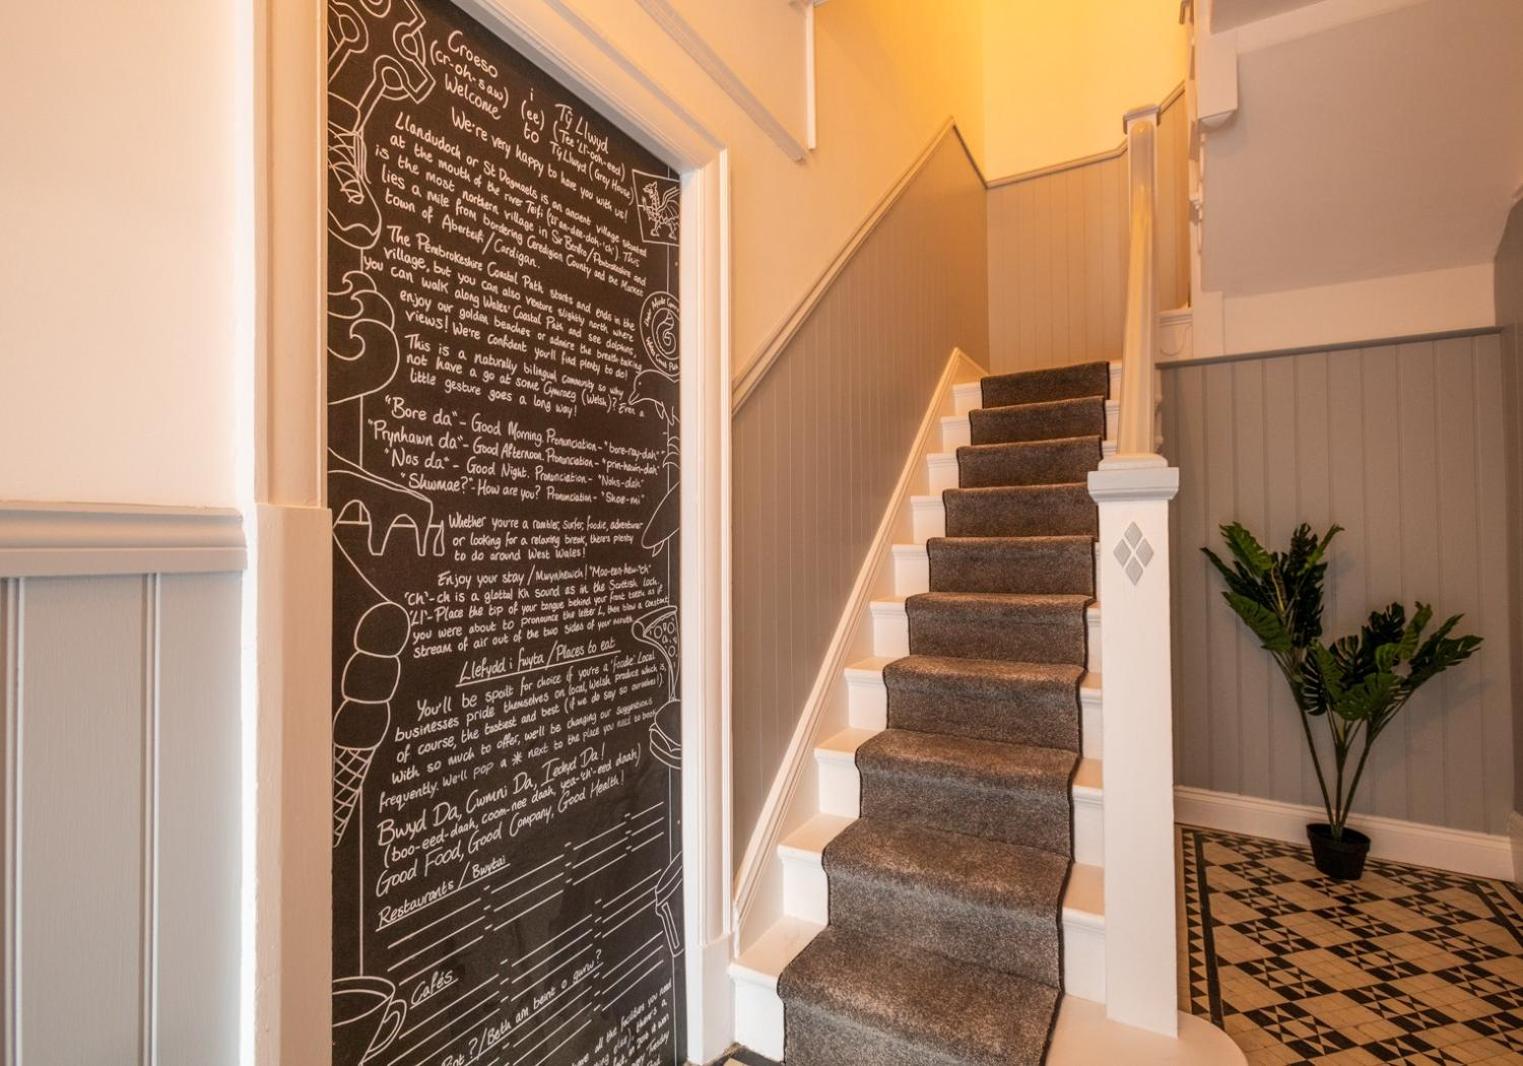 Croeso i Tŷ Llwyd
(cr-oh-saw) (ee) (Tee 'Ll-ooh-eed)
Welcome to Tŷ Llwyd (Grey House)
We're very happy to have you with us!
Llandudoch or St Dogmaels is an ancient village situated
at the mouth of the river Teifi. This
is the most northern village in Sir Benfro/Pembrokeshire and
lies a mile from bordering Ceredigion County and the Market
town of Aberteifi/Cardigan.
The Pembrokeshire Coastal Path starts and ends in the
village, but you can also venture slightly north where
you can walk along Wales' Coastal Path and see dolphins,
enjoy our golden beaches or admire the breath-taking
views! We're confident you'll find plenty to do!
This is a naturally bilingual community so why
not have a go at some Cymraeg (Welsh)? Even a
little gesture goes a long way!
"Bore da" - Good Morning. Pronunciation - "bore-ray-dah"
"Prynhawn da" - Good Afternoon. Pronunciation - "prin-hawn-dah"
"Nos da" - Good Night. Pronunciation - "Nohs-dah"
"Shwmae?" - How are you? Pronunciation - "Shoe-mi"
Whether you're a rambler, surfer, foodie, adventurer
or looking for a relaxing break, there's plenty
to do around West Wales!
Enjoy your stay / Mwynhewch! "Moo-een-hew-'ch"
'Ch'-ch is a glottal Kh sound as in the Scottish loch.
'Ll'-Place the tip of your tongue behind your front teeth as if
you were about to pronounce the letter L, then blow a constant
stream of air out of the two sides of your mouth.
Llefydd i fwyta / Places to eat
You'll be spoilt for choice if you're a 'foodie'. Local
businesses pride themselves on local, Welsh produce which is,
of course, the tastiest and best (if we do say so ourselves!).
With so much to offer, we'll be changing our suggestions
frequently. We'll pop a * next to the place you need to book
Bwyd Da, Cwmni Da, Iechyd Da!
(boo-eed-daah, coom-nee daah, yea-'ch'-eed daah)
Good Food, Good Company, Good Health!
Restaurants / Bwytai
Cafés
Pint? / Beth am beint o gwrw?
all the facilities you need
there's a